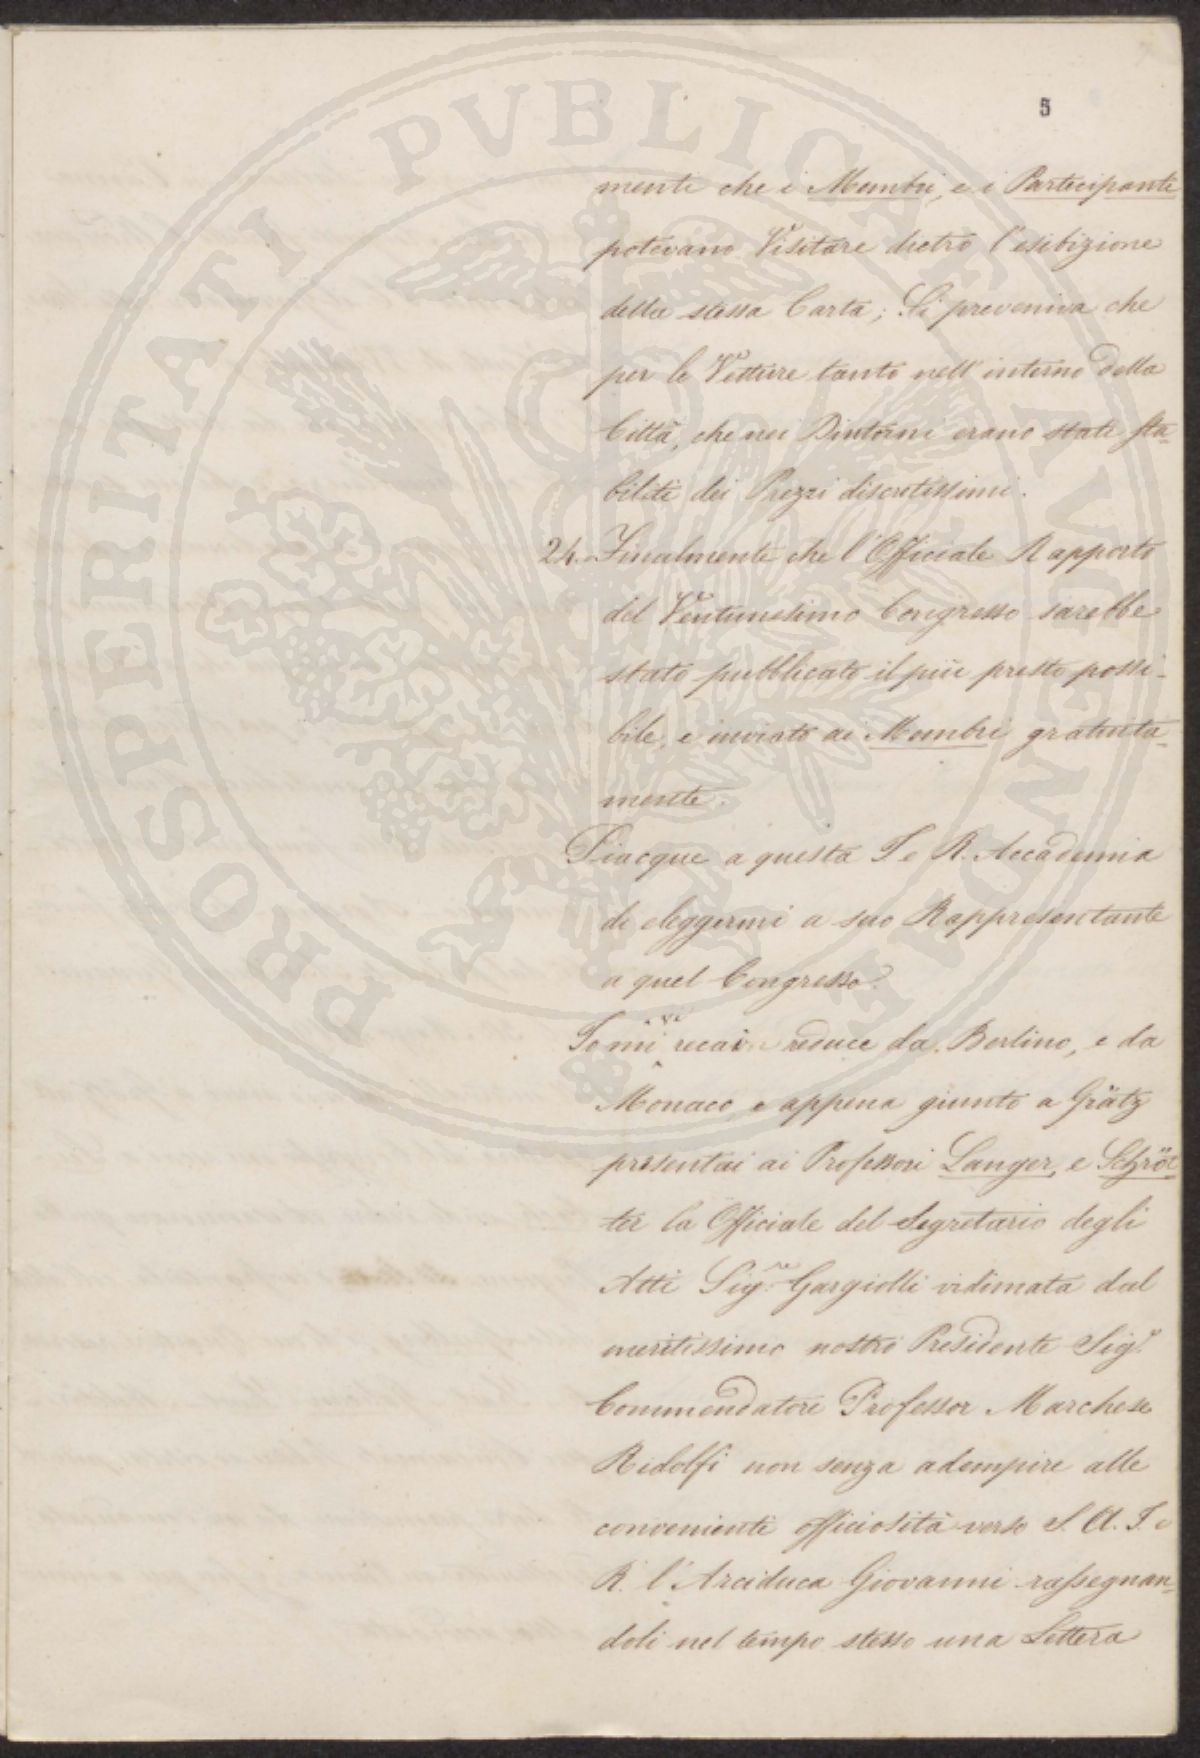 5
mente che i Membri, e i Partecipanti
potevano Visitare dietro l'esibizione
della stessa Carta; Si preveniva che
per le Vetture tanto nell'interno della
Città, che nei Dintorni erano stati sta-
biliti dei Prezzi discretissimi.
24. Finalmente che l'Officiale Rapporto
del Ventunesimo Congresso sarebbe
stato pubblicato il più presto possi-
bile, e inviato ai Membri gratuita-
mente.
Piacque a questa I e R. Accademia
di eleggermi a suo Rappresentante
a quel Congresso.
Io mi vi recai reduce da Berlino, e da
Monaco, e appena giunto a Grätz
presentai ai Professori Langer, e Schröt
ter la Officiale del Segretario degli
Atti Sig.re Gargiolli vidimata dal
meritissimo nostro Presidente Sig.r
Commendatore Professor Marchese
Ridolfi non senza adempire alle
convenienti officiosità verso S. A. I. e
R. l'Arciduca Giovanni rassegnan-
doli nel tempo stesso una Lettera
PROSPERITATI PVBLICAE AVGENDAE